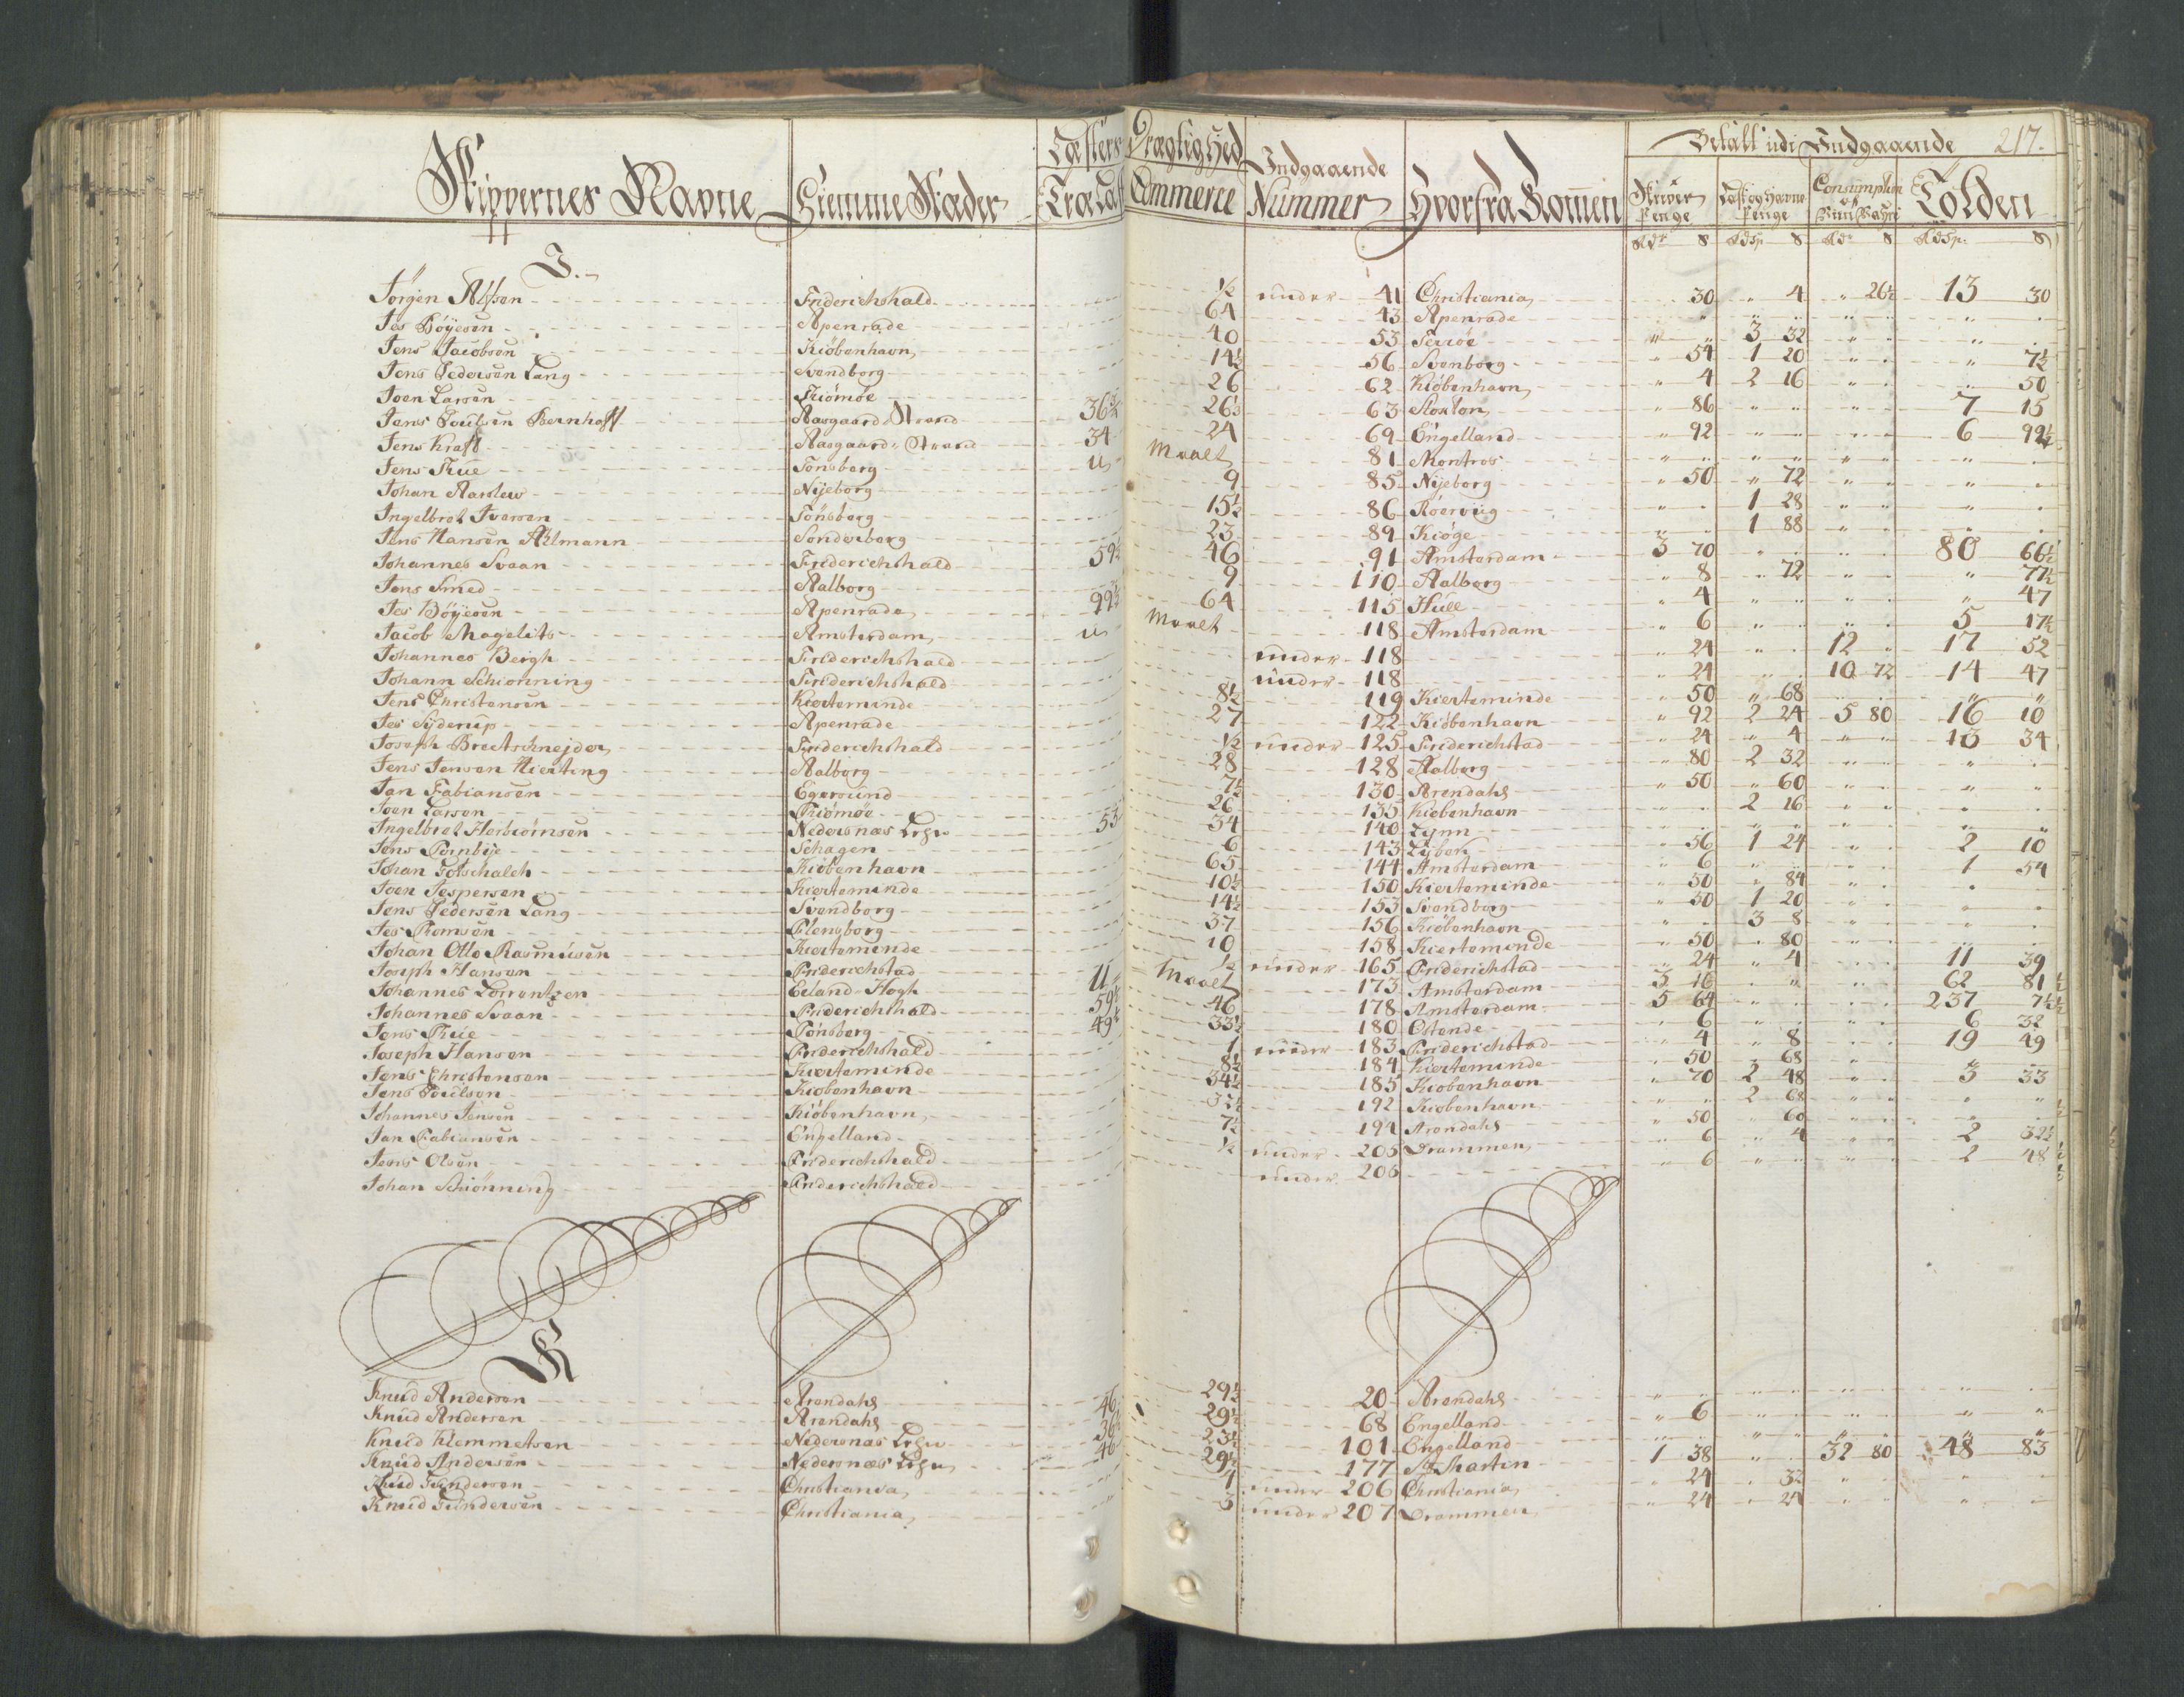 Skippernes Navne Hiemme Stæder Læsters Drægtighed Indgaaende Nummer Hvorfra Kommen Betalt udi Indgaaende 217.
Træ Commerce Penge Penge Consumption Tolden
J.
Jörgen Friderichshald ½ under 41 Christiania 30 " 4 " 26½ 13 30
Jes Böÿesen Apenrade 64 43 Apenrade
Jens Jacobsen Kiöbenhavn 40 53 " " 3 32
Jens Pedersen Lang Svendborg 14½ 56 Svenborg " 54 1 20 " 7½
Joen Larsen Tiömöe 26 62 Kiöbenhavn " 4 2 16 50
Jens Poulsen Bernhoft Aasgaard Strand 36¾ 26½ 63 " 86 7 15
Jens Kraft Aasgaard Strand 34 24 69 Engelland " 92 6 92½
Jens True Tönsberg u Maalt 81 Montros
Johan Nÿeborg 9 85 Nÿeborg " 50 " 72
Ingelbret Iversen Tönsberg 15½ 86 1 28
Jens Hansen Ahlmann Sonderborg 23 89 Kiöge 1 88
Johannes Svaan Friderichshald 59½ 46 91 Amsterdam 3 70 80 66½
Jens Smed Aalborg 9 110 Aalborg " 8 " 72 " 77½
Jes Böÿesen Apenrade 99½ 64 115 Hull " 4 " 47
Jacob Magelits Amsterdam u Maalt 118 Amsterdam " 6 5 17½
Johannes Bergh Friderichshald under 118 " 24 12 " 17 52
Johann Schionning Friderichshald under 118 " 24 10 72 14 47
Jens Christensen Kierteminde 8½ 119 Kierteminde " 50 " 68 " "
Jes Sÿderup Apenrade 27 122 Kiöbenhavn " 92 2 24 5 80 16 10
Joseph Bretschnejder Friderichshald ½ under 125 Friderichstad " 24 " 4 13 34
Jens Jensen Hierting Aalborg 28 128 Aalborg " 80 2 32
Jan Fabiansen Egersund 7½ 130 Arendahl " 50 " 60
Joen Larson Tiömöe 26 135 Kiöbenhavn 2 16
Ingelbret Herbiörnsen Nedernæs Lehn 53 34 140 Lynn
Jens Schagen 6 143 Lÿbek " 56 1 24 2 10
Johan Gotschalch Kiöbenhavn 65 144 Amsterdam " 6 1 54
Joen Jespersen Kierteminde 10½ 150 Kierteminde " 50 " 84
Jens Pedersen Lang Svendborg 14½ 153 Svendborg " 50 1 20
Jes Tomsen Flensborg 37 156 Kiöbenhavn 3 8
Johan Otto Rasmusen Kierteminde 10 158 Kierteminde " 50 " 80
Joseph Hansen Friderichstad ½ under 165 Friderichstad " 24 " 4 11 39
Johannes Lorrentzen u Maalt 173 Amsterdam 3 16 62 81½
Johannes Svaan Friderichshald 59½ 46 178 Amsterdam 5 64 237 7½
Jens True Tönsberg 49½ 33½ 180 Ostende " 6 6 32
Joseph Hansen Friderichshald 1 under 183 Friderichstad " 4 " 8 19 49
Jens Christensen Kierteminde 8½ 184 Kierteminde " 50 " 68
Jens Poulson Kiobenhavn 34½ 185 Kiobenhavn " 70 2 48 3 33
Johannes Jensen Kiöbenhavn 192 Kiobenhavn 2 68
Jan Fabiansen Engelland 7½ 194 Arendahl " 50 " 60
Jens Olsen Friderichshald ½ under 205 Drammen " 6 " 4 2 32½
Johan Schiönning Friderichshald under 206 " 6 2 48
K
Knud Andersen Arendahl 29½ 20 Arendahl
Knud Andersen Arendahl 46 29½ 68 Engelland " 6
Knud Klemmetsen Nedernæs Lehn 36½ 23½ 101 Engelland
Knud Andersen Nedernæs Lehn 46 29½ 177 St Martin 1 38 32 80 48 83
Knud Gundersen Christiania 4 under 206 Christiania " 24 " 32
Knud Gundersen Christiania 3 under 207 Drammen " 24 " 24